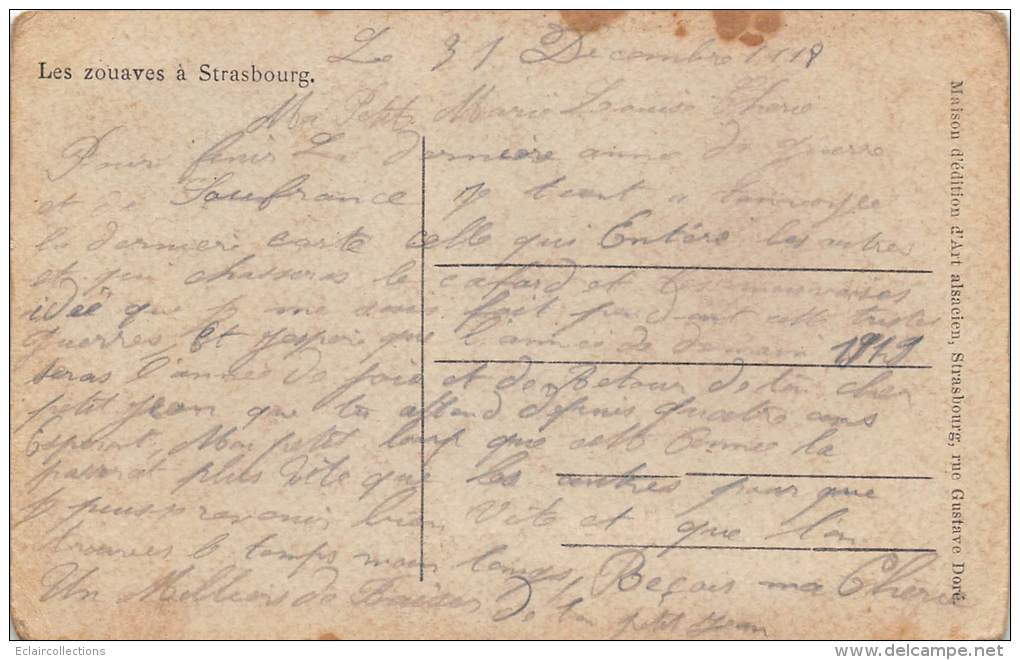 Les zouaves à Strasbourg.
Le 31 Decembre 1918
Ma Petite Marie Louise Cherie
Pour finir La dernière anné de guerre
et de Soufrance je tient a t'envoyée
la derniere carte celle qui Entére les autres
et qui chasseras le cafard et les mauvaises
idée que je me sous fait pendant cett triste
guerres, Et j'espoire que l'année de demain 1919
seras l'année de joie et de Retour de ton cher
petit jean que tu attend depuis quatre ans
Esperant Mon petit loup que cett année la
passerat plus vite que les autres pour que
je puisse revenir bien vite et que l'on
trouves le temps moin longs, Reçois ma Cherie
Un Milliers de Baisers de ton petit jean
Maison d'édition d'Art alsacien, Strasbourg, rue Gustave Doré.
Eclaircollections
www.delcampe.net